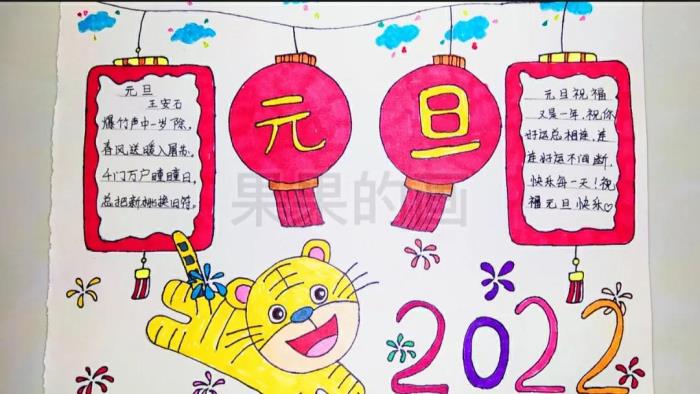 元旦
王安石
爆竹声中一岁除,
春风送暖入屠苏.
千门万户曈曈日,
总把新桃换旧符.
元旦
元旦祝福
又是一年,祝你
好运总相连,连
连好运不间断,
快乐每一天!祝
福元旦快乐♡
果果的画
2022